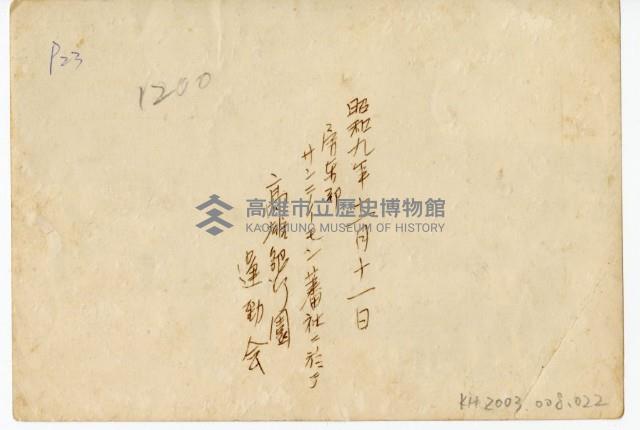 P23
1200
昭和九年十一月十一日
屏東郡
サンテイモン蕃社ニ於テ
高雄銀行團
運動会
高雄市立歷史博物館
KAOHSIUNG MUSEUM OF HISTORY
KH2003.008.022